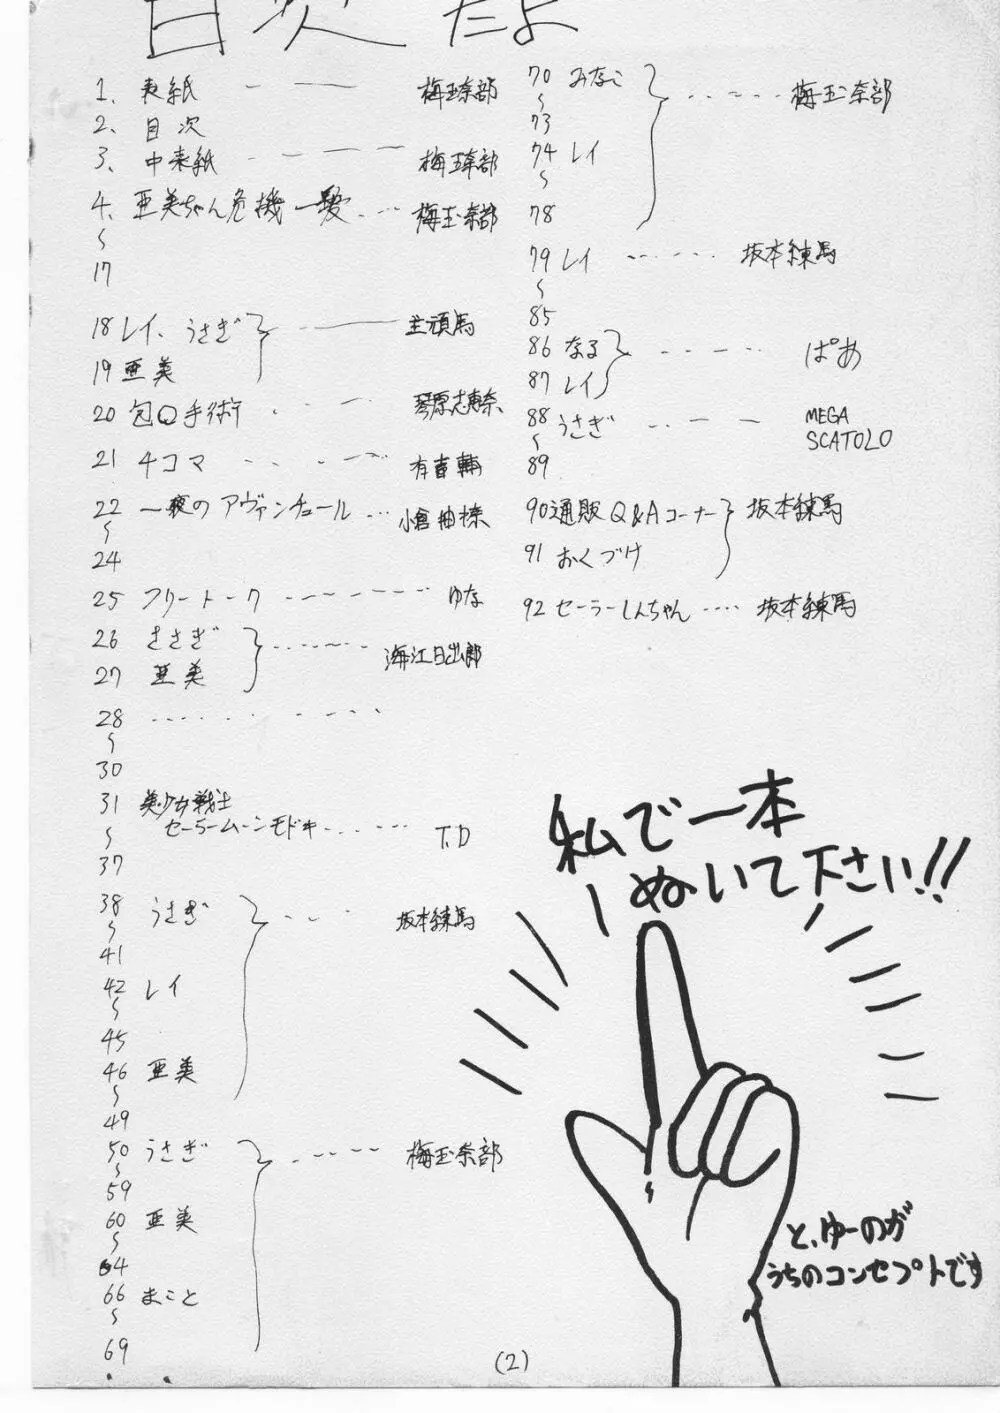 目次だよ
1、表紙 ----- 梅玉奈部
2、目次
3、中表紙 ----- 梅玉奈部
4、亜美ちゃん危機一髪 ... 梅玉奈部
〜
17
18 レイ、うさぎ
19 亜美
20 包Q手術
21 4コマ
22 一夜のアヴァンチュール
〜
24
25 フリートーク ------- ゆな
26 うさぎ
27 亜美
28
〜
30
31 美少女戦士
〜 セーラームーンモドキ ...... T.D
37
38 うさぎ 坂本練馬
〜
41
42 レイ
〜
45
46 亜美
〜
49
50 うさぎ ------ 梅玉奈部
〜
59
60 亜美
〜
64
66 まこと
〜
69
70 みなこ ------ 梅玉奈部
〜
73
74 レイ
〜
78
79 レイ ------ 坂本練馬
〜
85
86 なる ------ ぱあ
87 レイ
88 うさぎ ----- MEGA
〜 SCATOLO
89
90 通販Q&Aコーナー 坂本練馬
91 おくづけ
92 セーラーしんちゃん .... 坂本練馬
私で一本
ぬいて下さい!!
と、ゆーのが
うちのコンセプトです
(2)